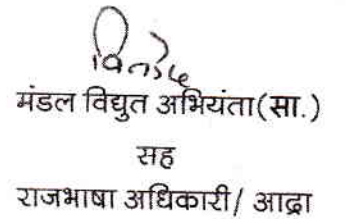 विनोद
मंडल विद्युत अभियंता(सा.)
सह
राजभाषा अधिकारी/ आद्रा